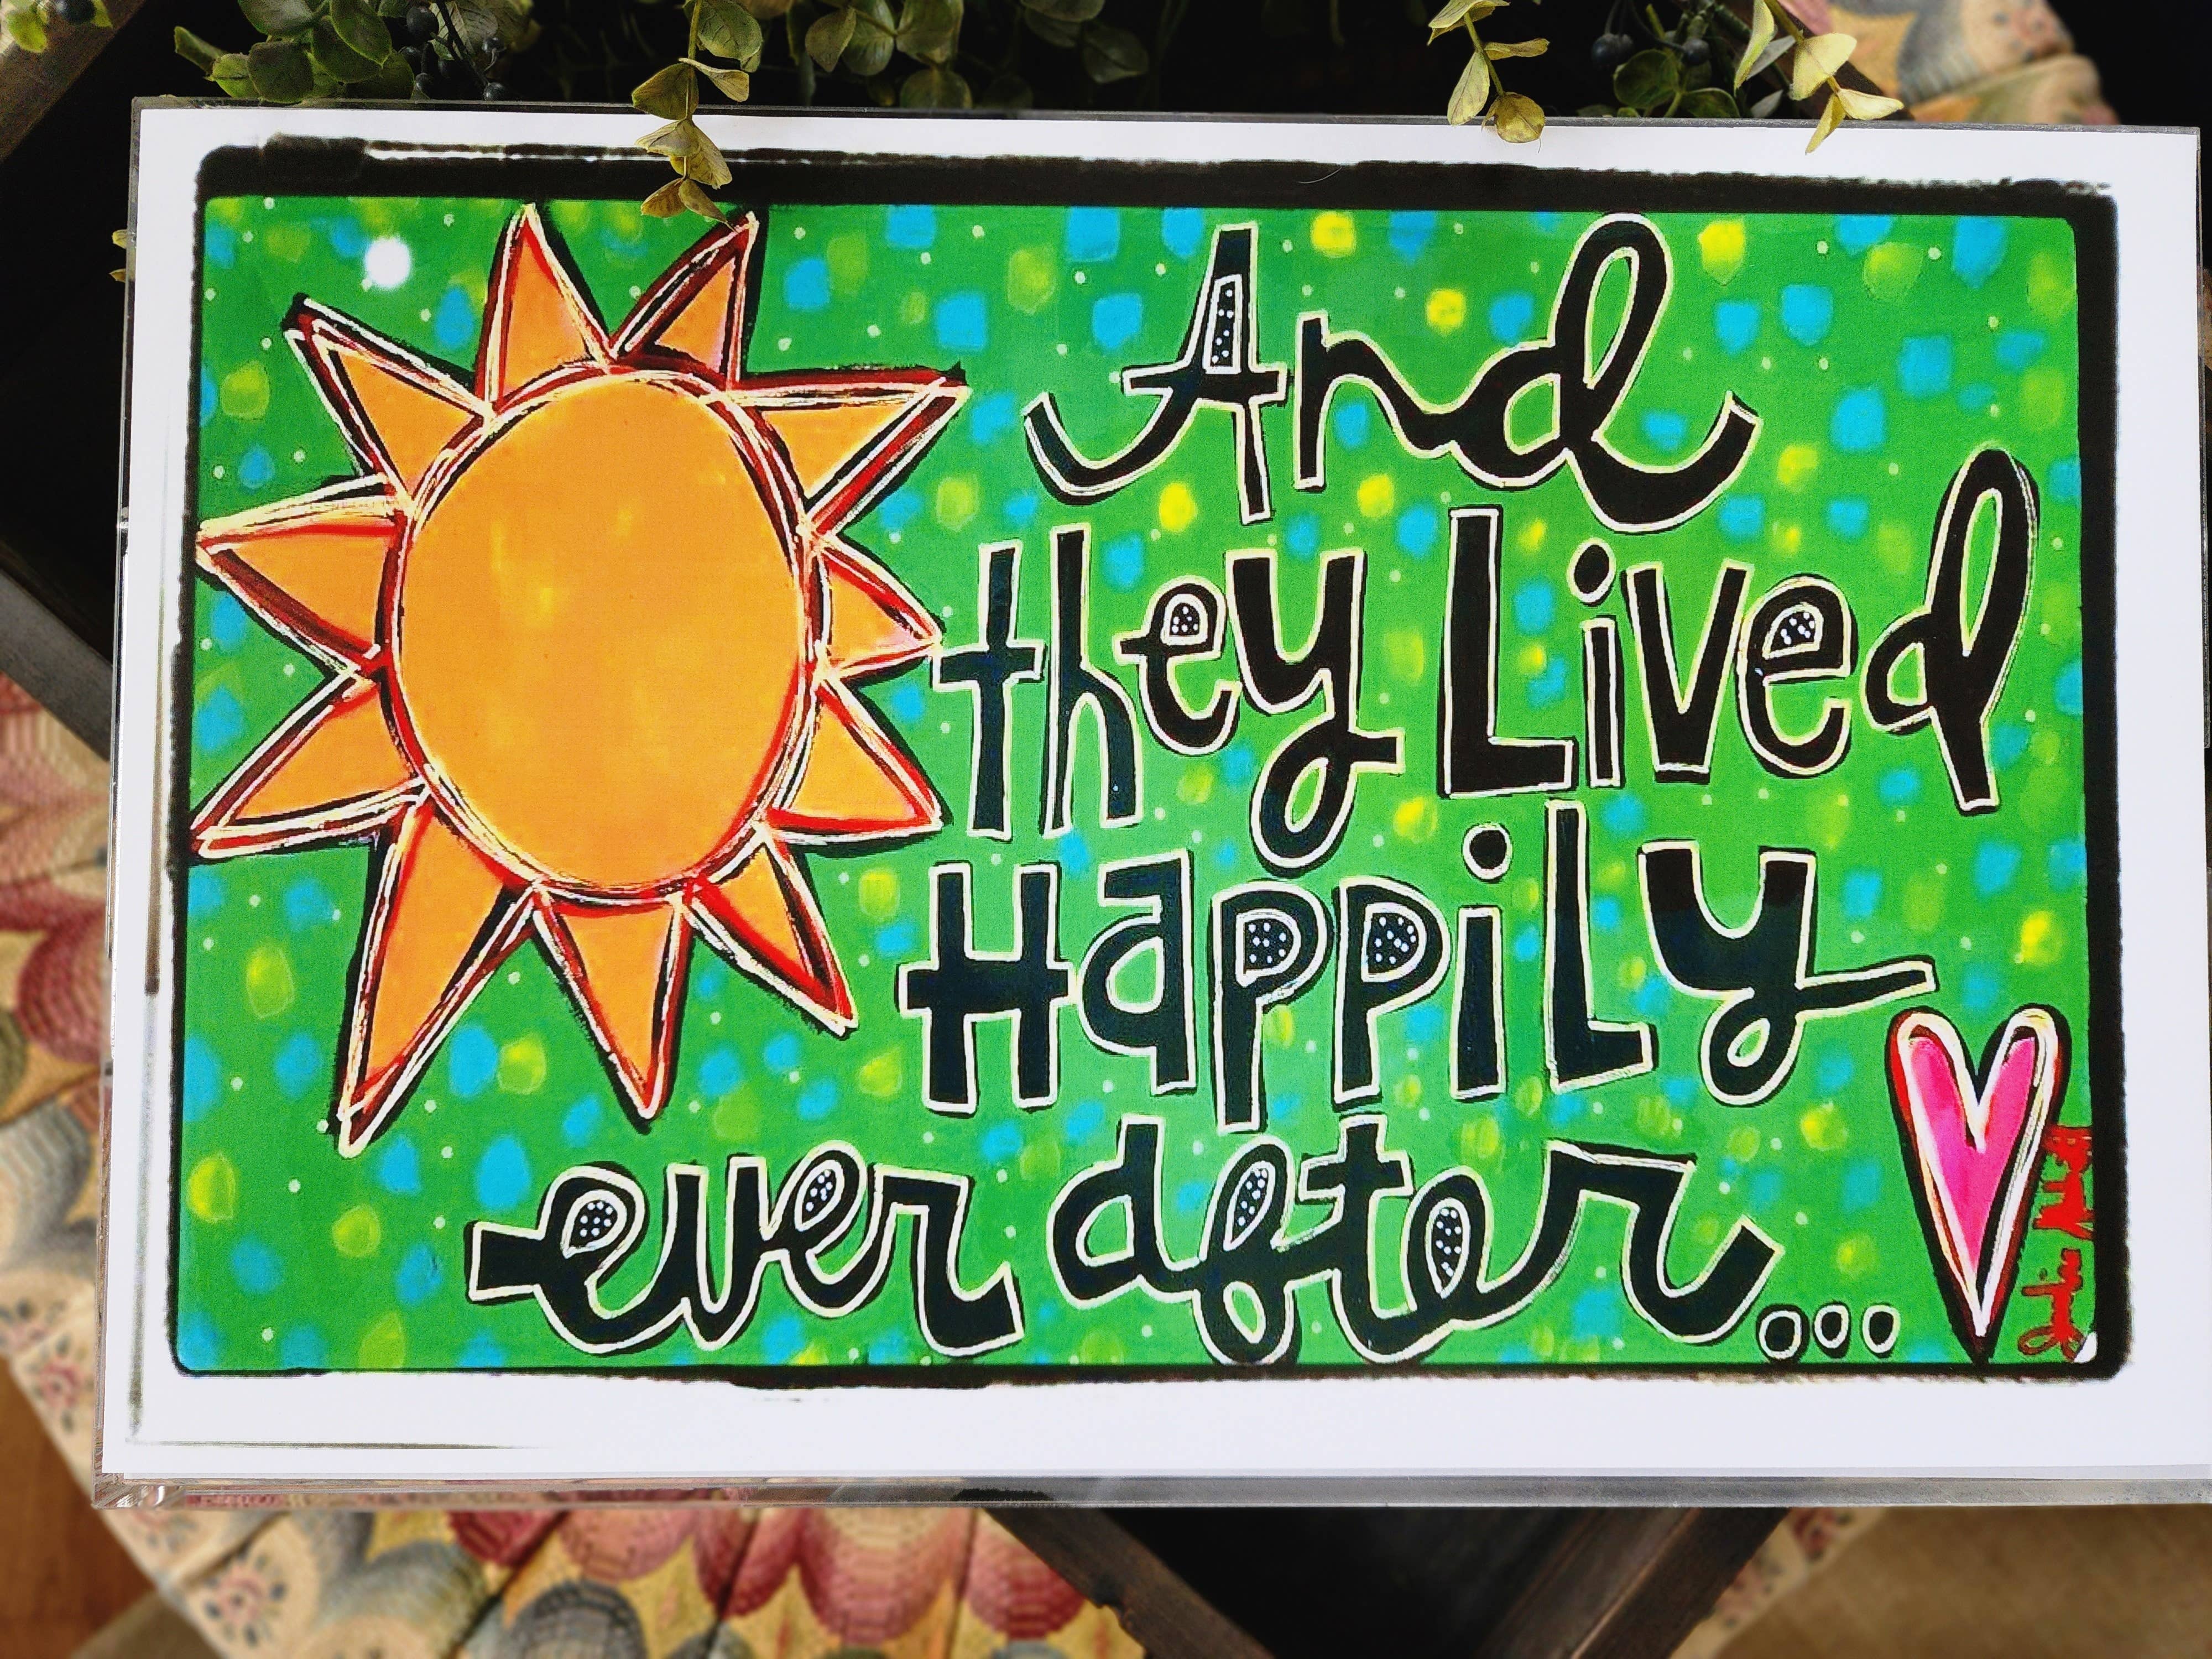 And
they Lived
Happily
ever after...